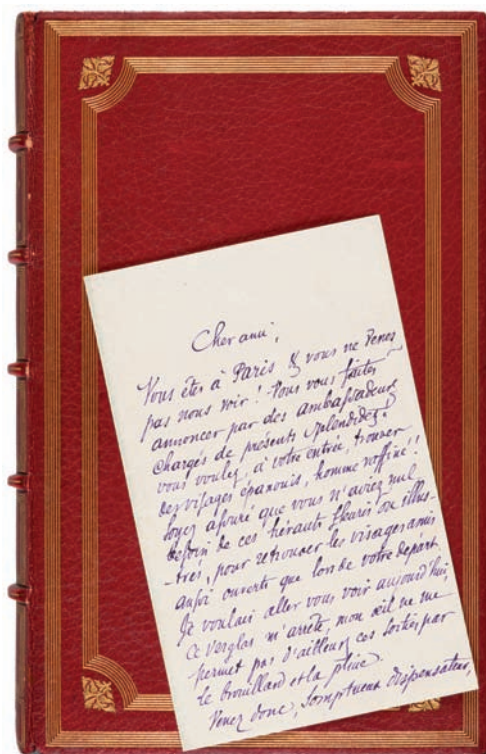 Cher ami,
Vous êtes à Paris & vous ne venez
pas nous voir ! Vous vous faites
annoncer par des ambassadeurs
chargés de présents splendides !
vous voulez, à votre entrée, trouver
des visages épanouis, homme raffiné !!
soyez assuré que vous n'aviez nul
besoin de ces hérauts fleuris ou illus-
-trés, pour retrouver les visages amis
aussi ouverts que lors de votre départ
Je voulais aller vous voir aujourd'hui,
ce verglas m'arrête, mon œil ne me
permet pas d'ailleurs ces sorties par
le brouillard et la pluie
Venez donc, somptueux dispensateur,